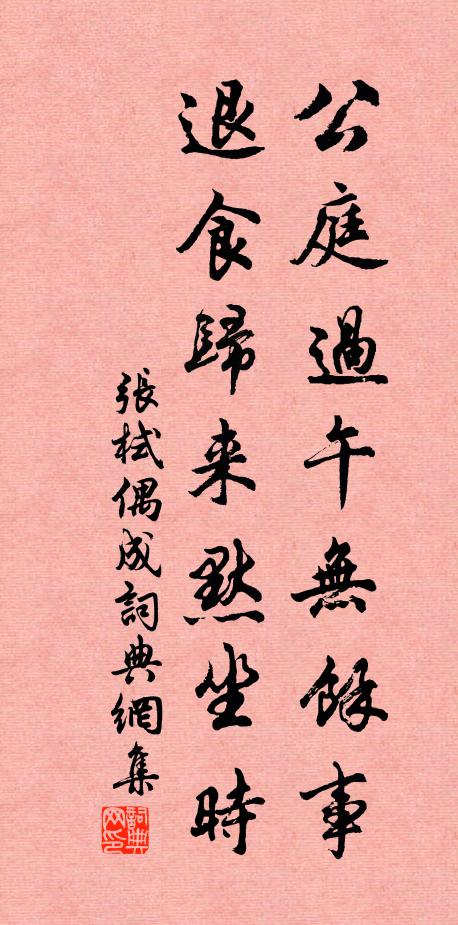 公庭過午無餘事
退食歸来默坐時
張栻偶成詞典網集
詞典网印